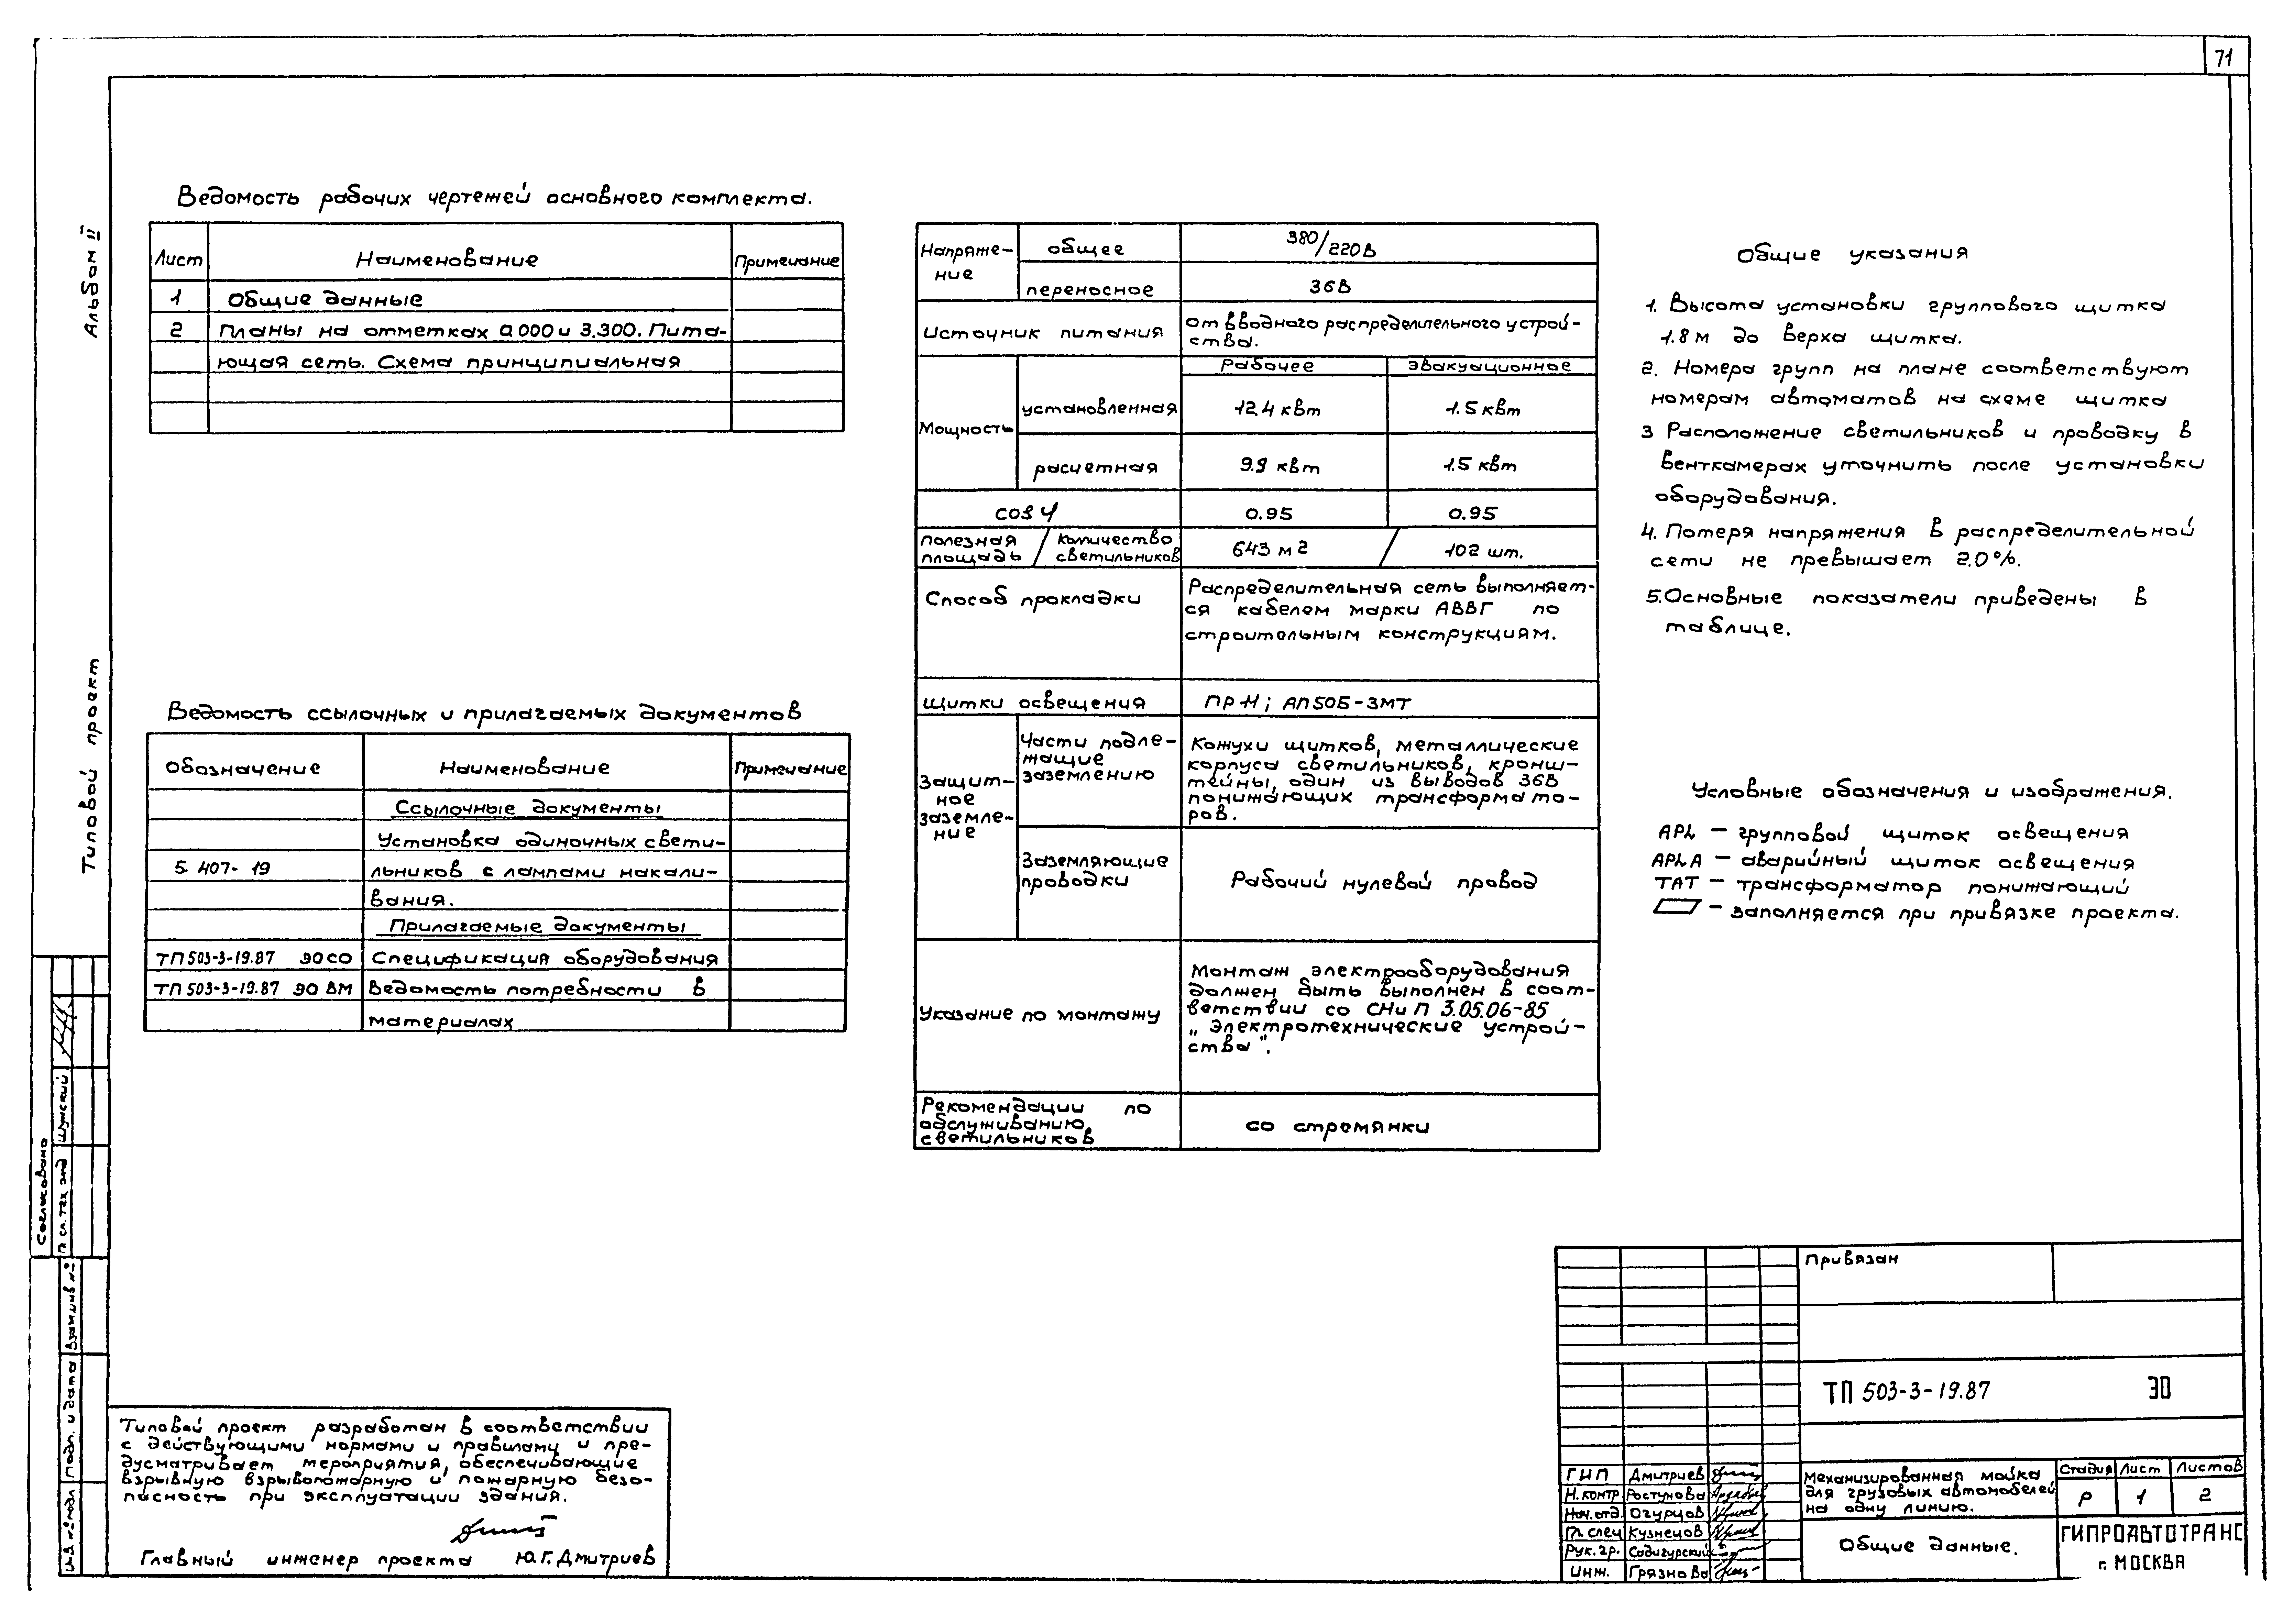 71
Альбом II
Типовой проект
Ведомость рабочих чертежей основного комплекта.
Лист Наименование Примечание
1 Общие данные
2 Планы на отметках 0.000 и 3.300. Пита-
ющая сеть. Схема принципиальная
Ведомость ссылочных и прилагаемых документов
Обозначение Наименование Примечание
Ссылочные документы
Установка одиночных свети-
5. 407- 19 льников с лампами накали-
вания.
Прилагаемые документы
ТП 503-3-19.87 ЭОСО Спецификация оборудования
ТП 503-3-19.87 ЭО ВМ Ведомость потребности в
материалах
Напряже-
ние
общее 380/220В
переносное 36В
Источник питания
от вводного распределительного устрой-
ства.
Мощность
Рабочее Эвакуационное
установленная 12.4 квт 1.5 квт
расчетная 9.9 квт 1.5 квт
cos φ 0.95 0.95
полезная площадь / Количество светильников
643 м2 / 102 шт.
Способ прокладки
Распределительная сеть выполняет-
ся кабелем марки АВВГ по
строительным конструкциям.
Щитки освещения ПР 11; АП50Б-3МТ
Защит-
ное
заземле-
ние
Части подле-
жащие
заземлению
Кожухи щитков, металлические
корпуса светильников, кронш-
тейны, один из выводов 36В
понижающих трансформато-
ров.
Заземляющие
проводки
Рабочий нулевой провод
Указание по монтажу
Монтаж электрооборудования
должен быть выполнен в соот-
ветствии со СНиП 3.05.06-85
„Электротехнические устрой-
ства".
Рекомендации по
обслуживанию
светильников
со стремянки
Общие указания
1. Высота установки группового щитка
1.8 м до верха щитка.
2. Номера групп на плане соответствуют
номерам автоматов на схеме щитка
3 Расположение светильников и проводку в
венткамерах уточнить после установки
оборудования.
4. Потеря напряжения в распределительной
сети не превышает 2.0%.
5. Основные показатели приведены в
таблице.
Условные обозначения и изображения.
APL – групповой щиток освещения
APLA – аварийный щиток освещения
TAT – трансформатор понижающий
– заполняется при привязке проекта.
Согласовано
Гл. тех. отд Шумский
Взам инв №
Подп. и дата
Инв № подл
Типовой проект разработан в соответствии
с действующими нормами и правилами и пре-
дусматривает мероприятия, обеспечивающие
взрывную взрывопожарную и пожарную безо-
пасность при эксплуатации здания.
Главный инженер проекта Ю.Г. Дмитриев
Привязан
ТП 503-3-19.87 ЭО
ГИП Дмитриев
Н.контр Ростунова
Нач.отд. Огурцов
Гл. спец Кузнецов
Рук. гр. Садигурский
Инж. Грязнова
Механизированная мойка
для грузовых автомобилей
на одну линию.
Стадия Лист Листов
Р 1 2
Общие данные.
ГИПРОАВТОТРАНС
г. МОСКВА